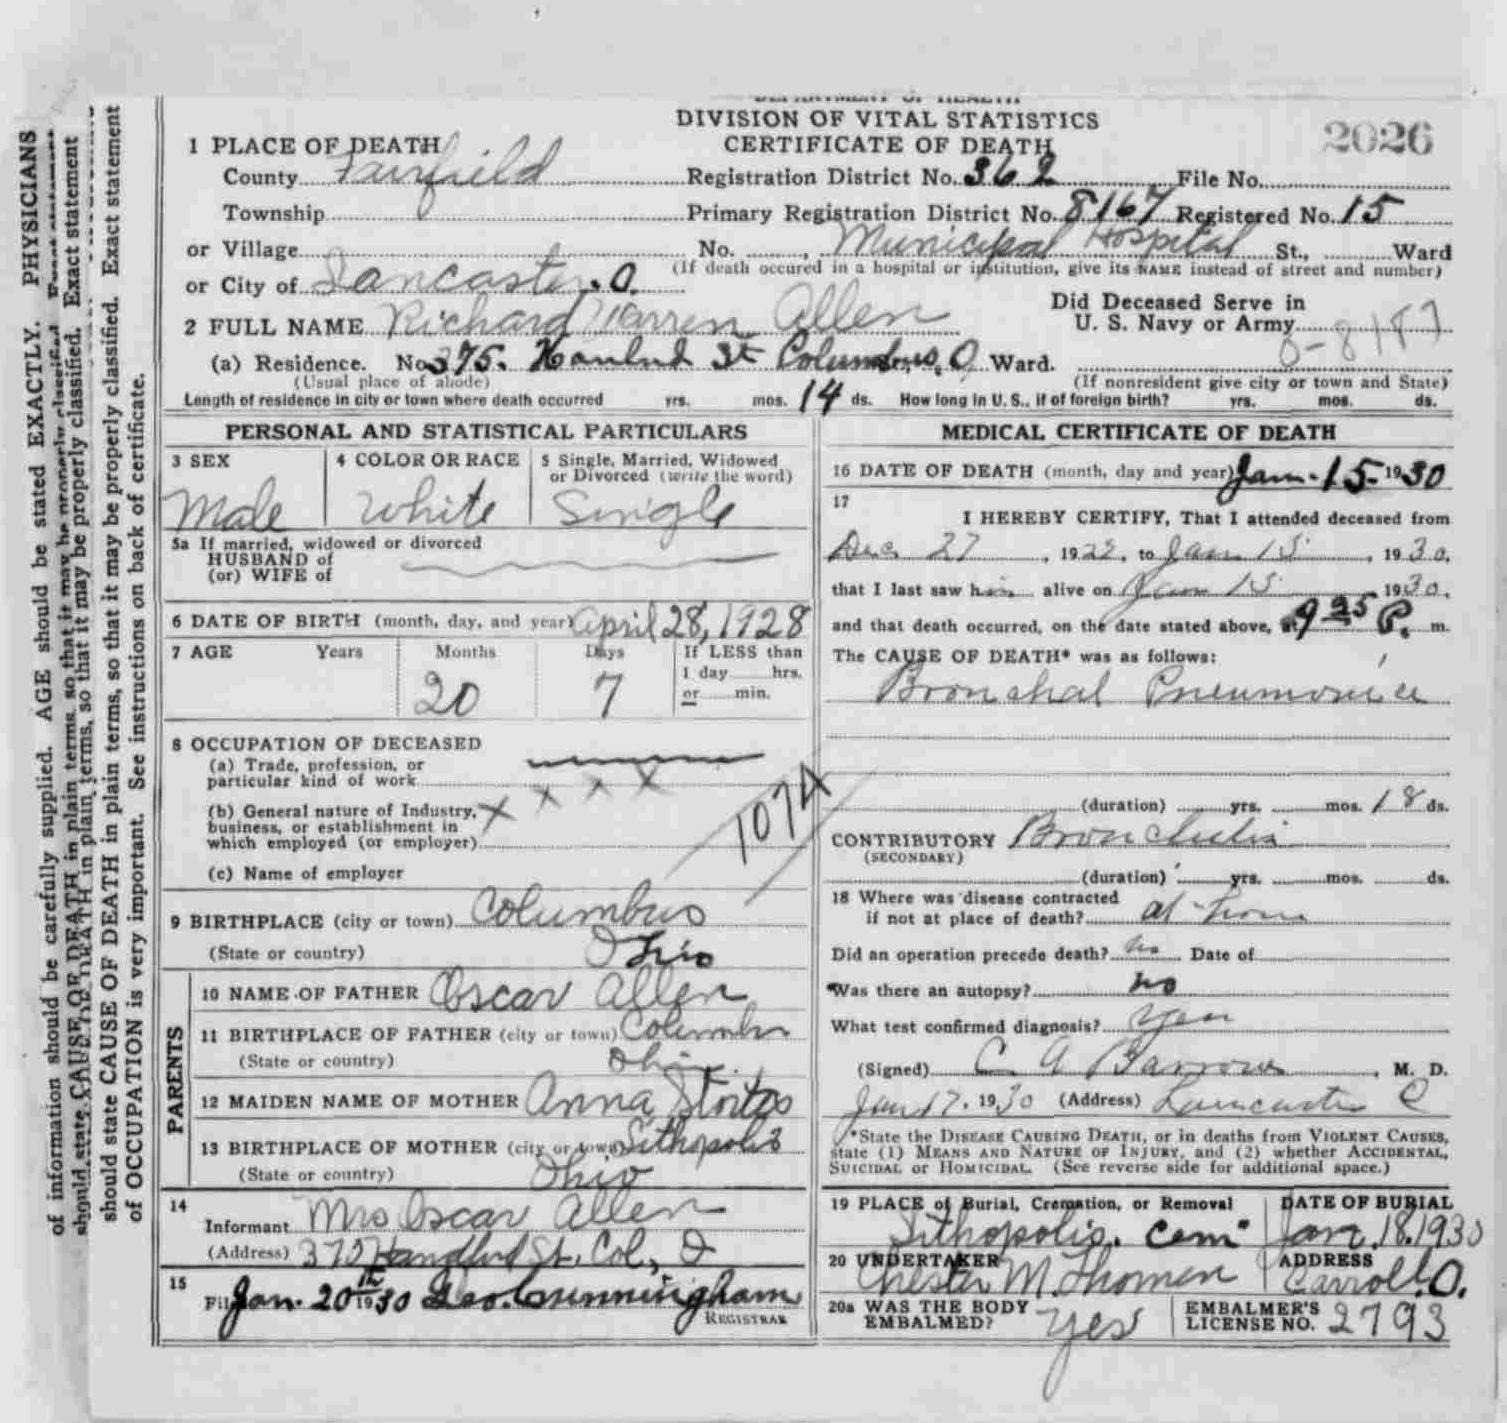 DIVISION OF VITAL STATISTICS
CERTIFICATE OF DEATH
2026
1 PLACE OF DEATH
County Fairfield Registration District No. 362 File No.
Township Primary Registration District No. 8167 Registered No. 15
or Village No. , Municipal Hospital St., Ward
(If death occured in a hospital or institution, give its NAME instead of street and number)
or City of Lancaster. O.
Did Deceased Serve in
U. S. Navy or Army
2 FULL NAME Richard Warren Allen
(a) Residence. No. 375. St Columbus, O, Ward.
(Usual place of abode) (If nonresident give city or town and State)
Length of residence in city or town where death occurred yrs. mos. 14 ds. How long in U. S., if of foreign birth? yrs. mos. ds.
PERSONAL AND STATISTICAL PARTICULARS
3 SEX 4 COLOR OR RACE 5 Single, Married, Widowed
or Divorced (write the word)
Male White Single
5a If married, widowed or divorced
HUSBAND of
(or) WIFE of
6 DATE OF BIRTH (month, day, and year) April 28, 1928
7 AGE Years Months Days If LESS than
1 day hrs.
or min.
20 7
8 OCCUPATION OF DECEASED
(a) Trade, profession, or
particular kind of work
x x x
(b) General nature of Industry, x
business, or establishment in
which employed (or employer)
1074
(c) Name of employer
9 BIRTHPLACE (city or town) Columbus
(State or country) Ohio
PARENTS
10 NAME OF FATHER Oscar Allen
11 BIRTHPLACE OF FATHER (city or town) Columbus
(State or country) Ohio
12 MAIDEN NAME OF MOTHER Anna
13 BIRTHPLACE OF MOTHER (city or town) Lithopolis
(State or country) Ohio
14
Informant Mrs Oscar Allen
(Address) St. Col., O
15
Filed Jan. 20th 1930 Geo. Cunningham
REGISTRAR
MEDICAL CERTIFICATE OF DEATH
16 DATE OF DEATH (month, day and year) Jan. 15 1930
17
I HEREBY CERTIFY, That I attended deceased from
Dec 27, 19 , to Jan 15, 1930,
that I last saw him alive on Jan 15 1930,
and that death occurred, on the date stated above, at 9 25 P. m.
The CAUSE OF DEATH* was as follows:
Bronchal Pneumonia
(duration) yrs. mos. 18 ds.
CONTRIBUTORY Bronchitis
(SECONDARY)
(duration) yrs. mos. ds.
18 Where was disease contracted
if not at place of death? at home
Did an operation precede death? no Date of
Was there an autopsy? no
What test confirmed diagnosis?
(Signed) C A Barrow, M. D.
Jan 17. 1930 (Address) Lancaster O
*State the DISEASE CAUSING DEATH, or in deaths from VIOLENT CAUSES,
state (1) MEANS AND NATURE OF INJURY, and (2) whether ACCIDENTAL,
SUICIDAL or HOMICIDAL. (See reverse side for additional space.)
19 PLACE of Burial, Cremation, or Removal DATE OF BURIAL
Lithopolis. Cem Jan. 18. 1930
20 UNDERTAKER ADDRESS
Chester M. Thomen Carroll. O.
20a WAS THE BODY
EMBALMED? Yes
EMBALMER'S
LICENSE NO. 2793
of information should be carefully supplied. AGE should be stated EXACTLY. PHYSICIANS
should state CAUSE OF DEATH in plain terms, so that it may be properly classified. Exact statement
should state CAUSE OF DEATH in plain terms, so that it may be properly classified. Exact statement
of OCCUPATION is very important. See instructions on back of certificate.